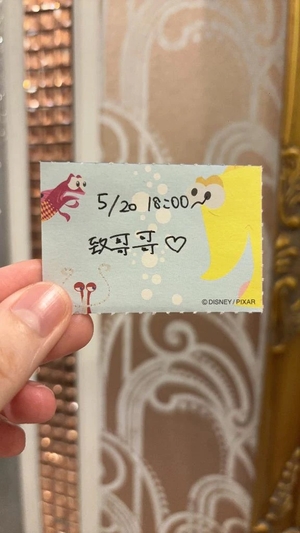 5/20 18:00~
致哥哥♡
©DISNEY/PIXAR